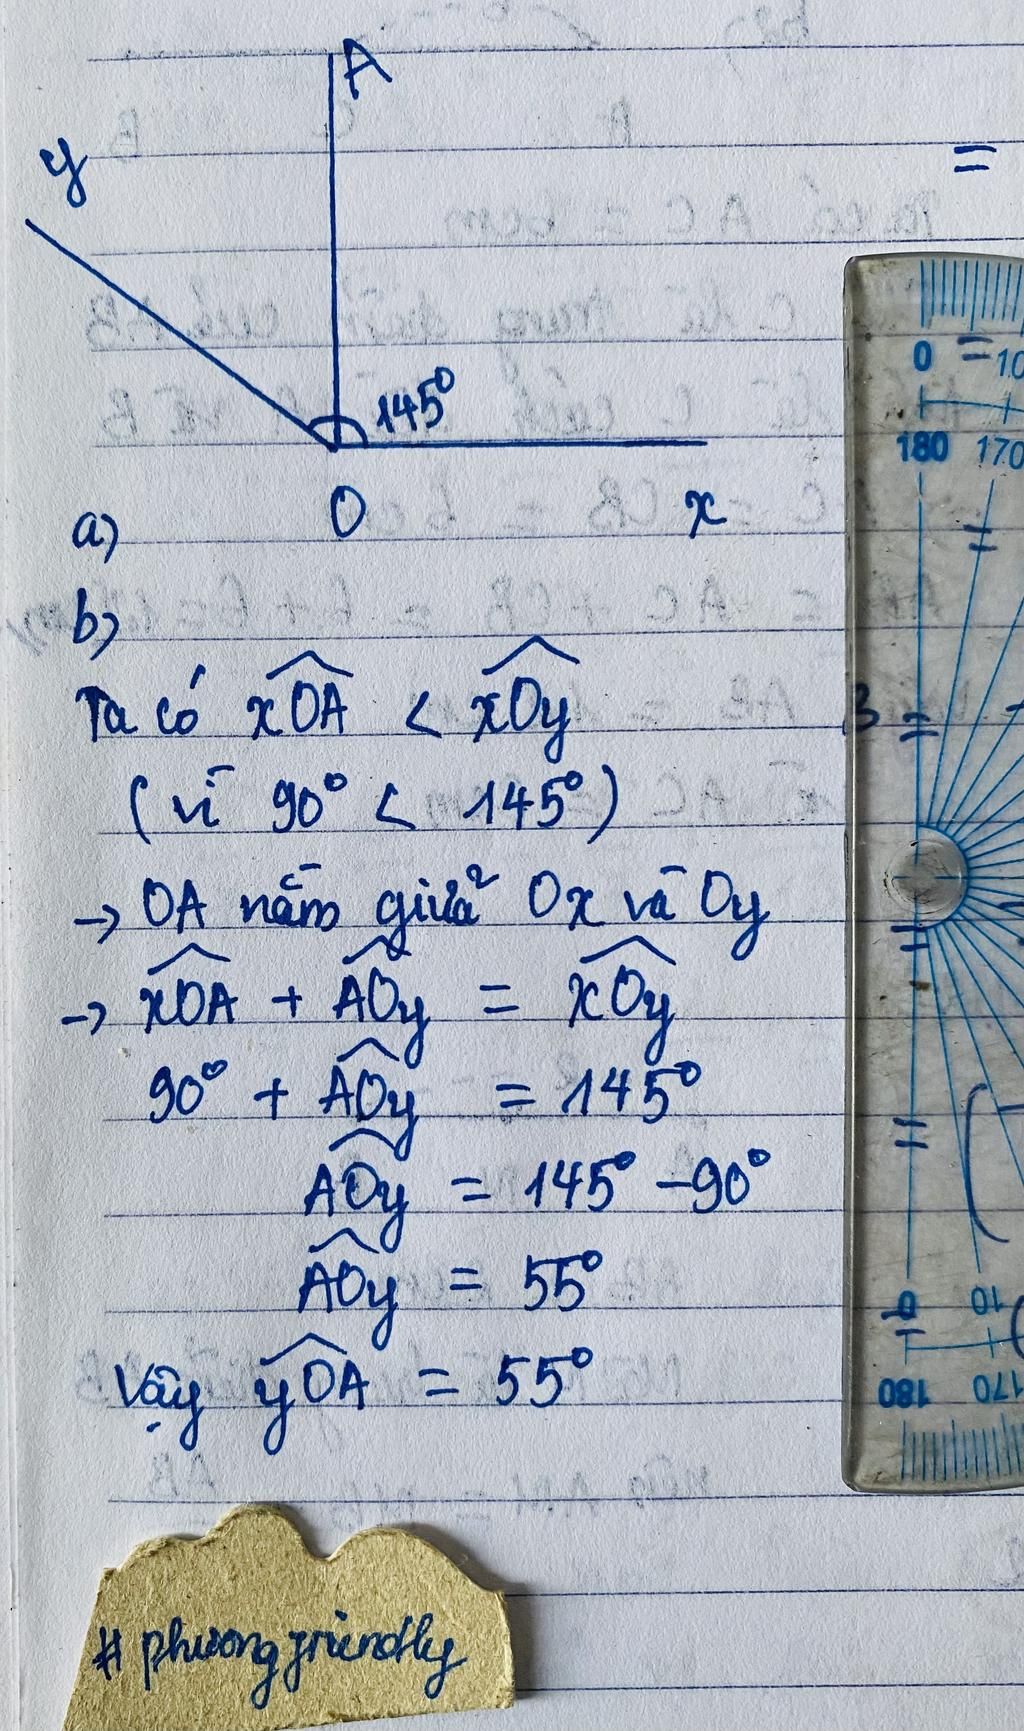 A
y
145⁰
O x
a)
b)
Ta có xOA < xOy
(vì 90⁰ < 145⁰)
→ OA nằm giữa Ox và Oy
→ xOA + AOy = xOy
90⁰ + AOy = 145⁰
AOy = 145⁰ - 90⁰
AOy = 55⁰
Vậy yOA = 55⁰
0 10
180 170
0 10
180 170